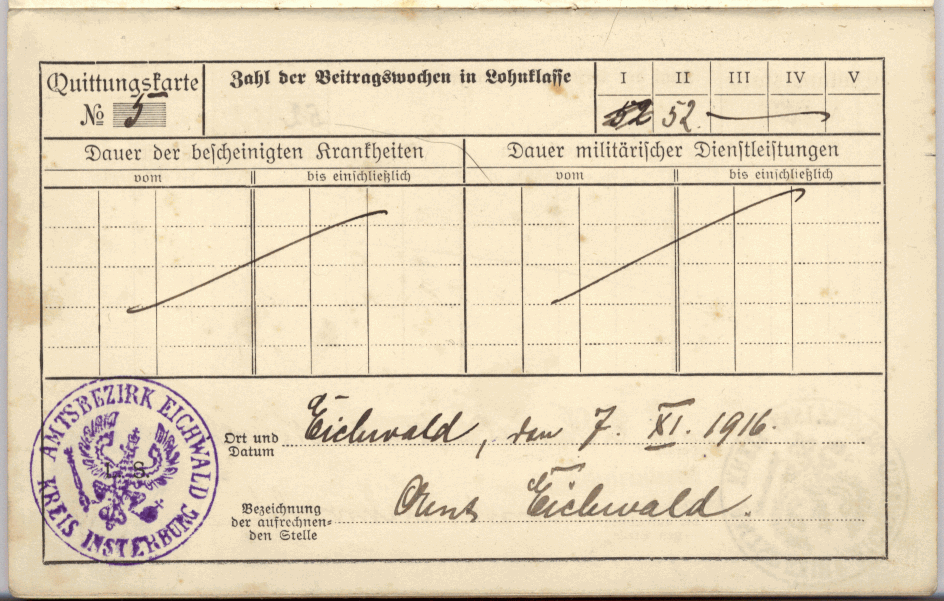 Quittungskarte
No 5
Zahl der Beitragswochen in Lohnklasse
I II III IV V
52 52.
Dauer der bescheinigten Krankheiten
Dauer militärischer Dienstleistungen
vom bis einschließlich vom bis einschließlich
AMTSBEZIRK EICHWALD
KREIS INSTERBURG
L. S.
Ort und
Datum
Eichwald, den 7. XI. 1916.
Bezeichnung
der aufrechnen-
den Stelle
Amt Eichwald.